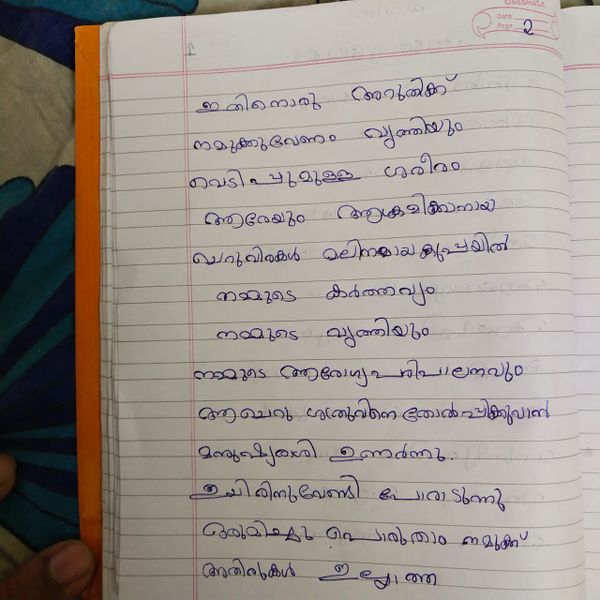 CLASSMATE
Date
Page 2
ഇതിനൊരു അറുതിക്ക്
നമുക്കുവേണം വൃത്തിയും
വെടിപ്പുമുള്ള ശരീരം
ആരേയും ആക്രമിക്കാനായ
ചെറുവിരകൾ മലിനമായകുപ്പയിൽ
നമ്മുടെ കർത്തവ്യം
നമ്മുടെ വൃത്തിയും
നമ്മുടെ ആരോഗ്യപരിപാലനവും
ആ ചെറു ശത്രുവിനെ തോൽപ്പിക്കുവാൻ
മനുഷ്യരാശി ഉണർന്നു.
ഉയിരിനുവേണ്ടി പോരാടുന്നു
ഒരുമിച്ചു പൊരുതാം നമുക്ക്
അതിരുകൾ ഇല്ലാത്ത